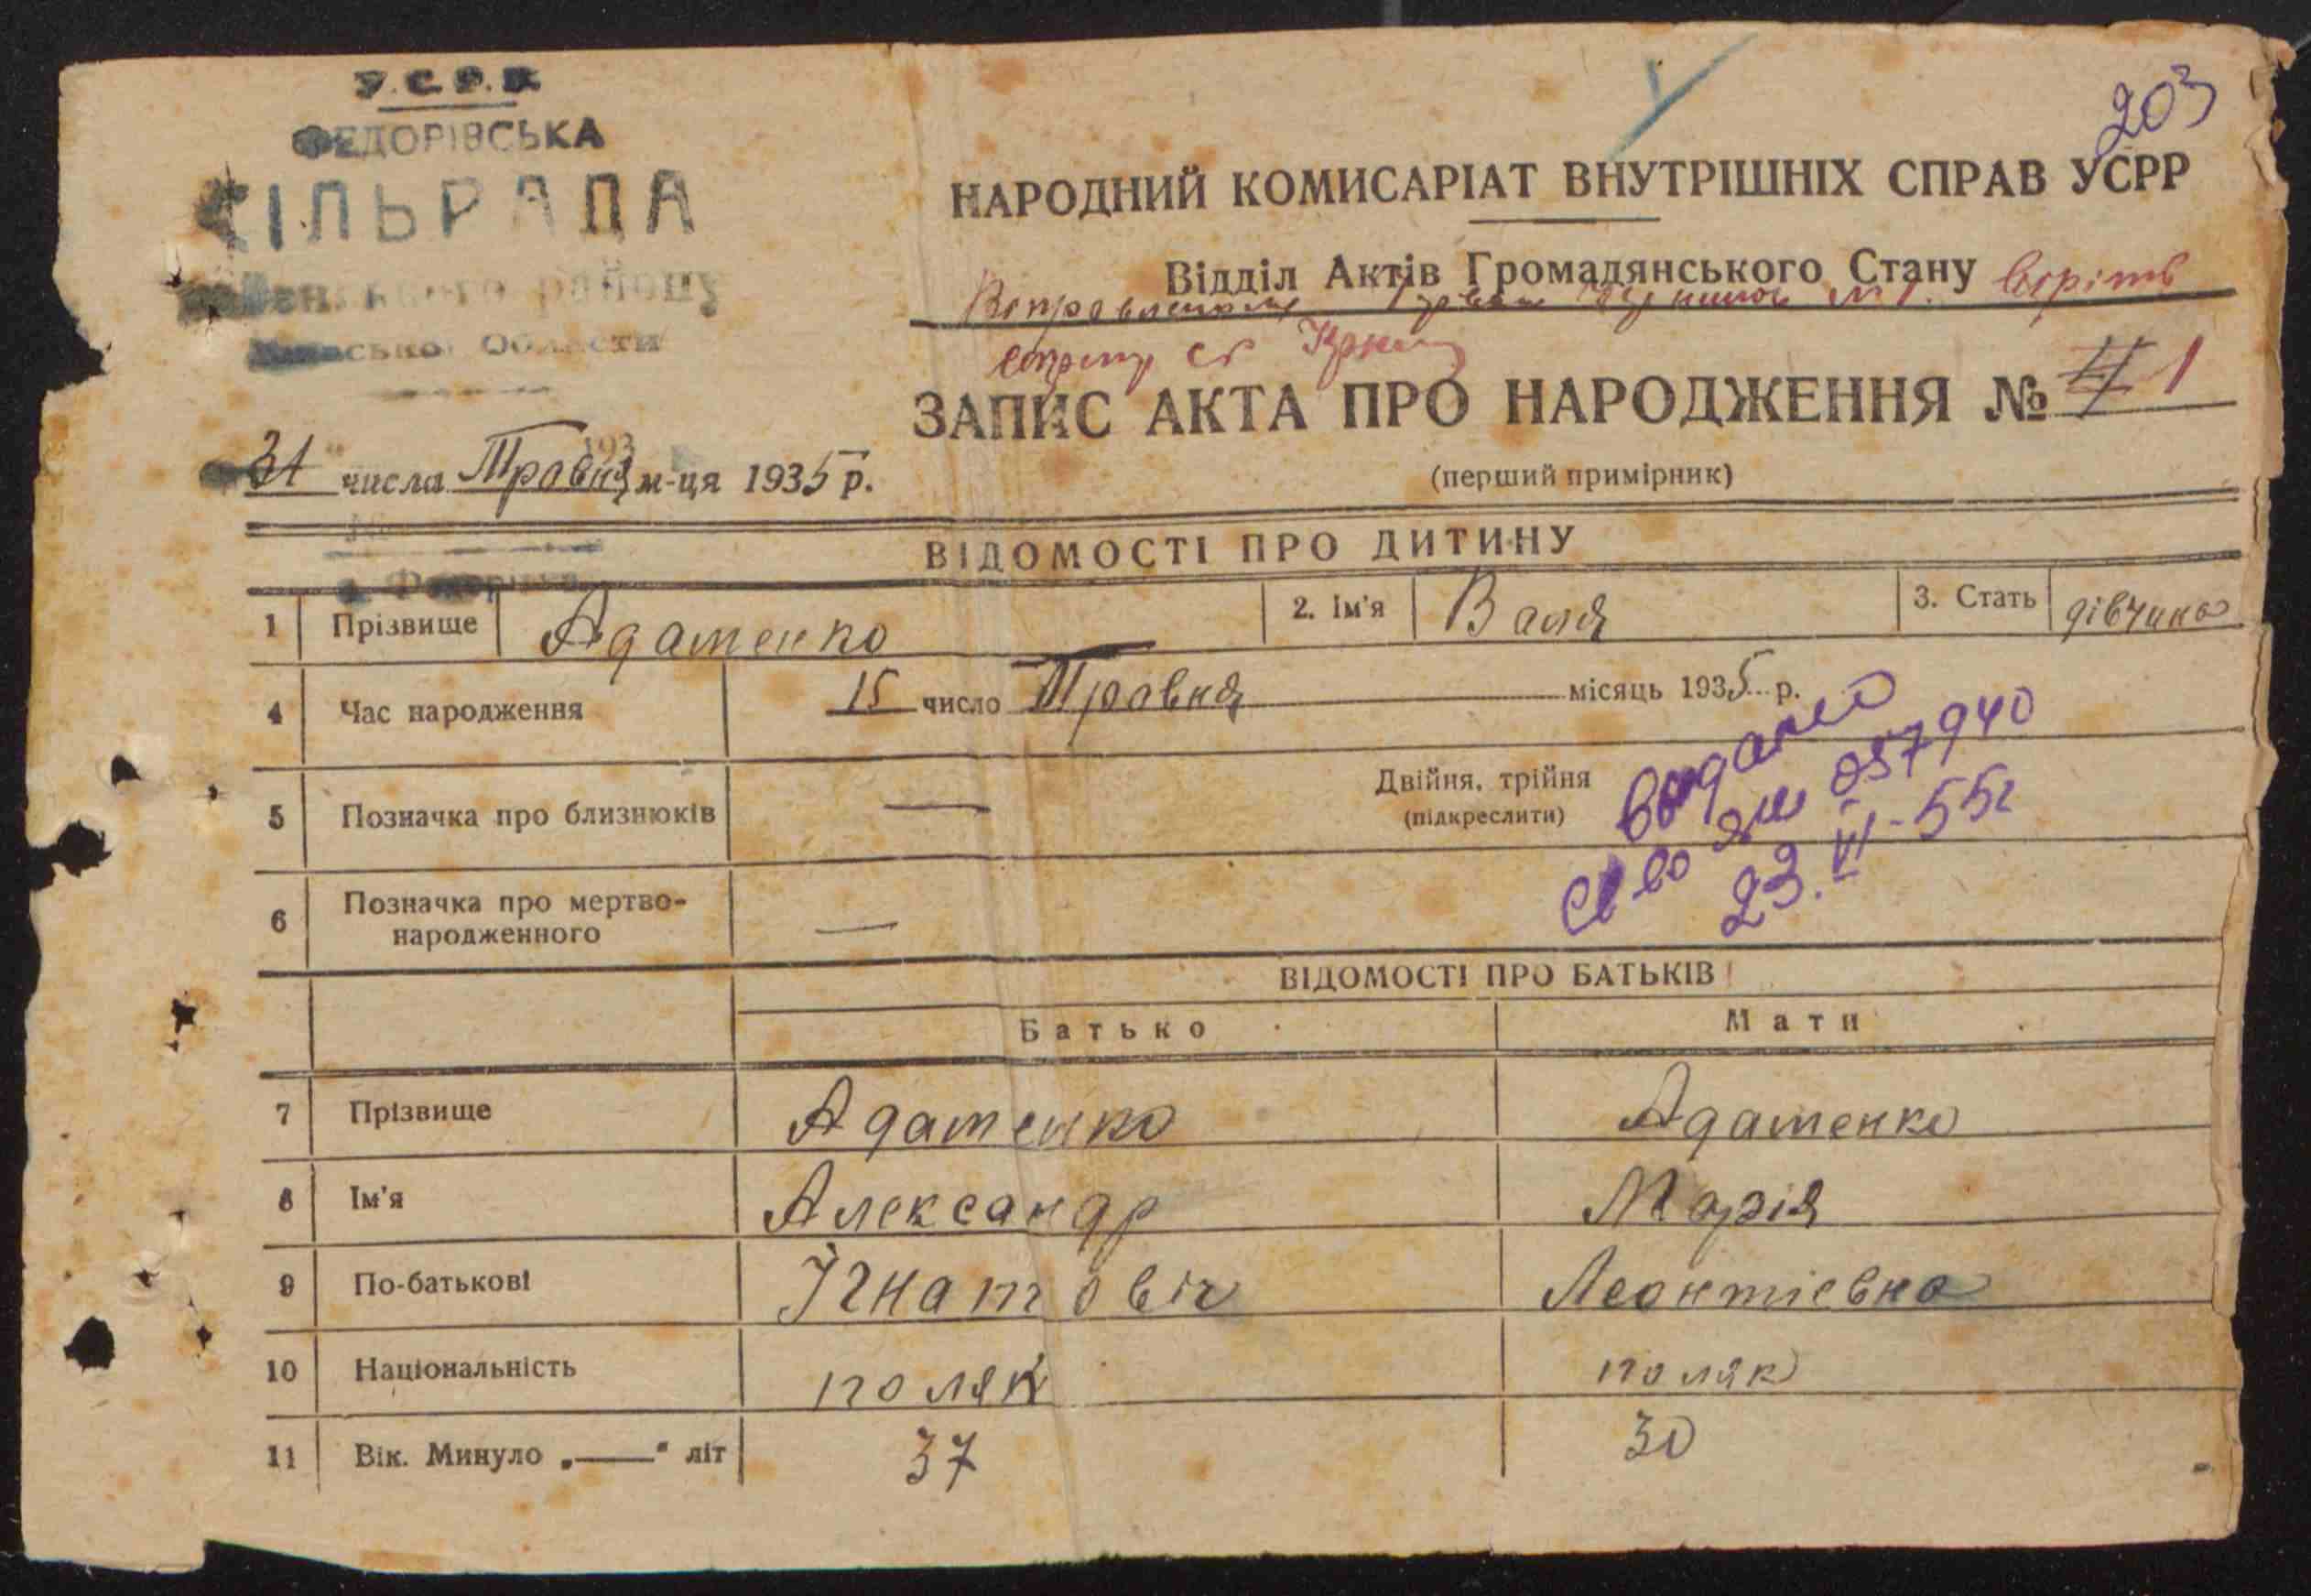 У.С.Р.Р.
ФЕДОРІВСЬКА
СІЛЬРАДА
району
Області
203
НАРОДНИЙ КОМИСАРІАТ ВНУТРІШНІХ СПРАВ УСРР
Відділ Актів Громадянського Стану
ЗАПИС АКТА ПРО НАРОДЖЕННЯ № 1
31 числа Травня м-ця 1935 р.
(перший примірник)
ВІДОМОСТІ ПРО ДИТИНУ
1 Прізвище Адаменко 2. Ім'я Валя 3. Стать дівчина
4 Час народження 15 число Травня місяць 1935 р.
5 Позначка про близнюків — Двійня, трійня
(підкреслити)
выдано
св во 057940
23.VI-55г
6 Позначка про мертво-
народженного —
ВІДОМОСТІ ПРО БАТЬКІВ
Батько Мати
7 Прізвище Адаменко Адаменко
8 Ім'я Александр Марія
9 По-батькові Ігнатовіч Леонтієвна
10 Національність поляк поляк
11 Вік. Минуло „——“ літ 37 30